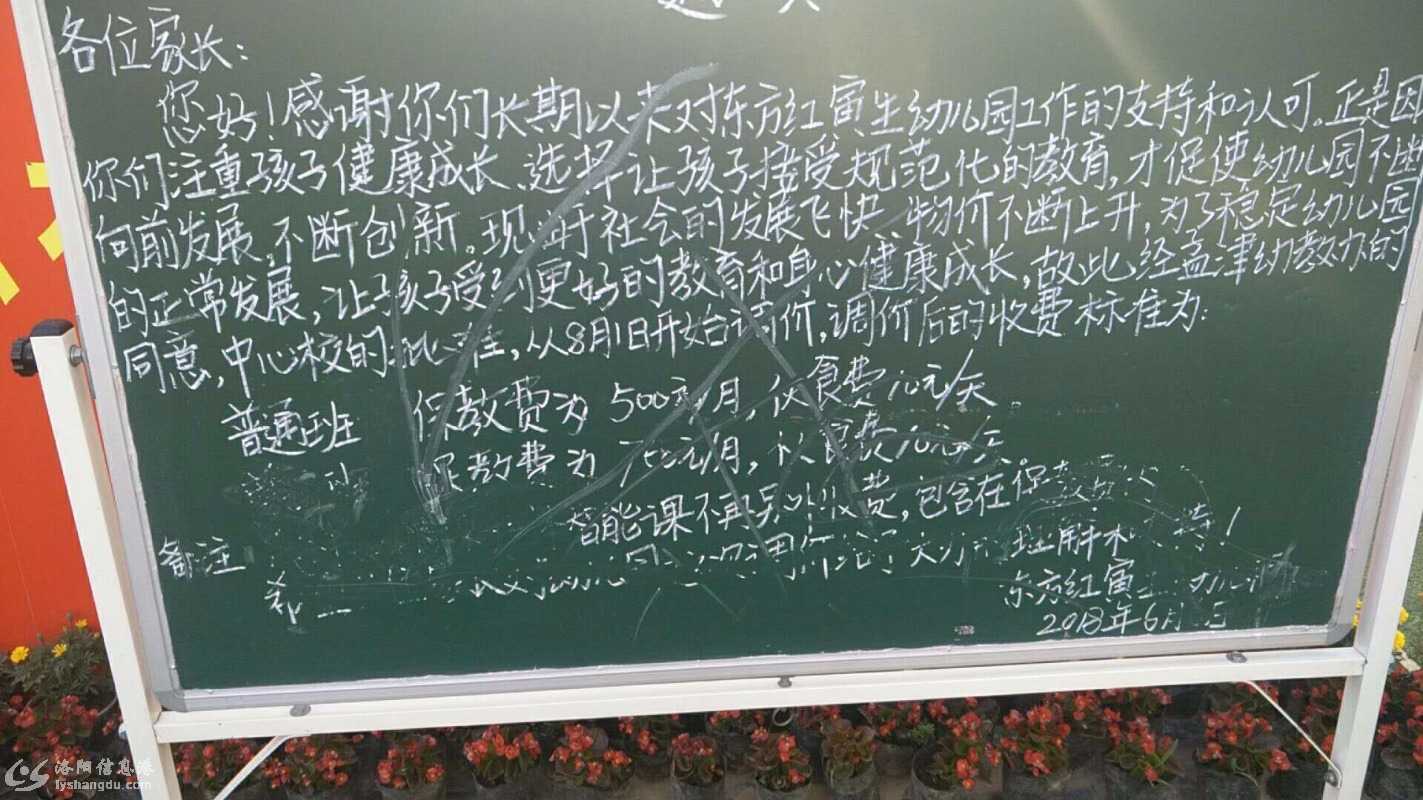 各位家长:
您好!感谢你们长期以来对东方红寅生幼儿园工作的支持和认可。正是因
你们注重孩子健康成长、选择让孩子接受规范化的教育,才促使幼儿园不断
向前发展,不断创新。现时社会的发展飞快,物价不断上升,为了稳定幼儿园
的正常发展,让孩子受到更好的教育和身心健康成长,故此经孟津幼教办的
同意,中心校的批准,从8月1日开始调价,调价后的收费标准为:
普通班 保教费为500元/月,伙食费10元/天。
保教费为 元/月,伙食费10元/天
备注 智能课不再另外收费,包含在保
东方红寅
2018年6月 日
洛阳信息港
lyshangdu.com